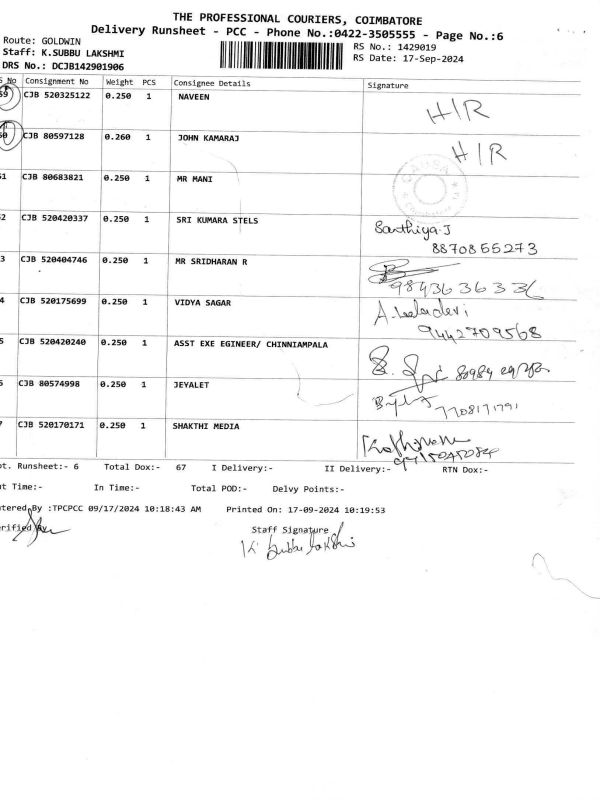 THE PROFESSIONAL COURIERS, COIMBATORE
Delivery Runsheet - PCC - Phone No.:0422-3505555 - Page No.:6
Route: GOLDWIN
RS No.: 1429019
Staff: K.SUBBU LAKSHMI
RS Date: 17-Sep-2024
DRS No.: DCJB142901906
S No Consignment No Weight PCS Consignee Details Signature
59 CJB 520325122 0.250 1 NAVEEN H/R
60 CJB 80597128 0.260 1 JOHN KAMARAJ H/R
61 CJB 80683821 0.250 1 MR MANI
2 CJB 520420337 0.250 1 SRI KUMARA STELS Santhiya.J
8870855273
3 CJB 520404746 0.250 1 MR SRIDHARAN R
9843636336
4 CJB 520175699 0.250 1 VIDYA SAGAR A. Leeladevi
9442709568
5 CJB 520420240 0.250 1 ASST EXE EGINEER/ CHINNIAMPALA
6 CJB 80574998 0.250 1 JEYALET
7708171791
7 CJB 520170171 0.250 1 SHAKTHI MEDIA
ot. Runsheet:- 6 Total Dox:- 67 I Delivery:- II Delivery:- RTN Dox:-
ut Time:- In Time:- Total POD:- Delvy Points:-
tered By :TPCPCC 09/17/2024 10:18:43 AM Printed On: 17-09-2024 10:19:53
erified By Staff Signature
K. Subbu Lakshmi